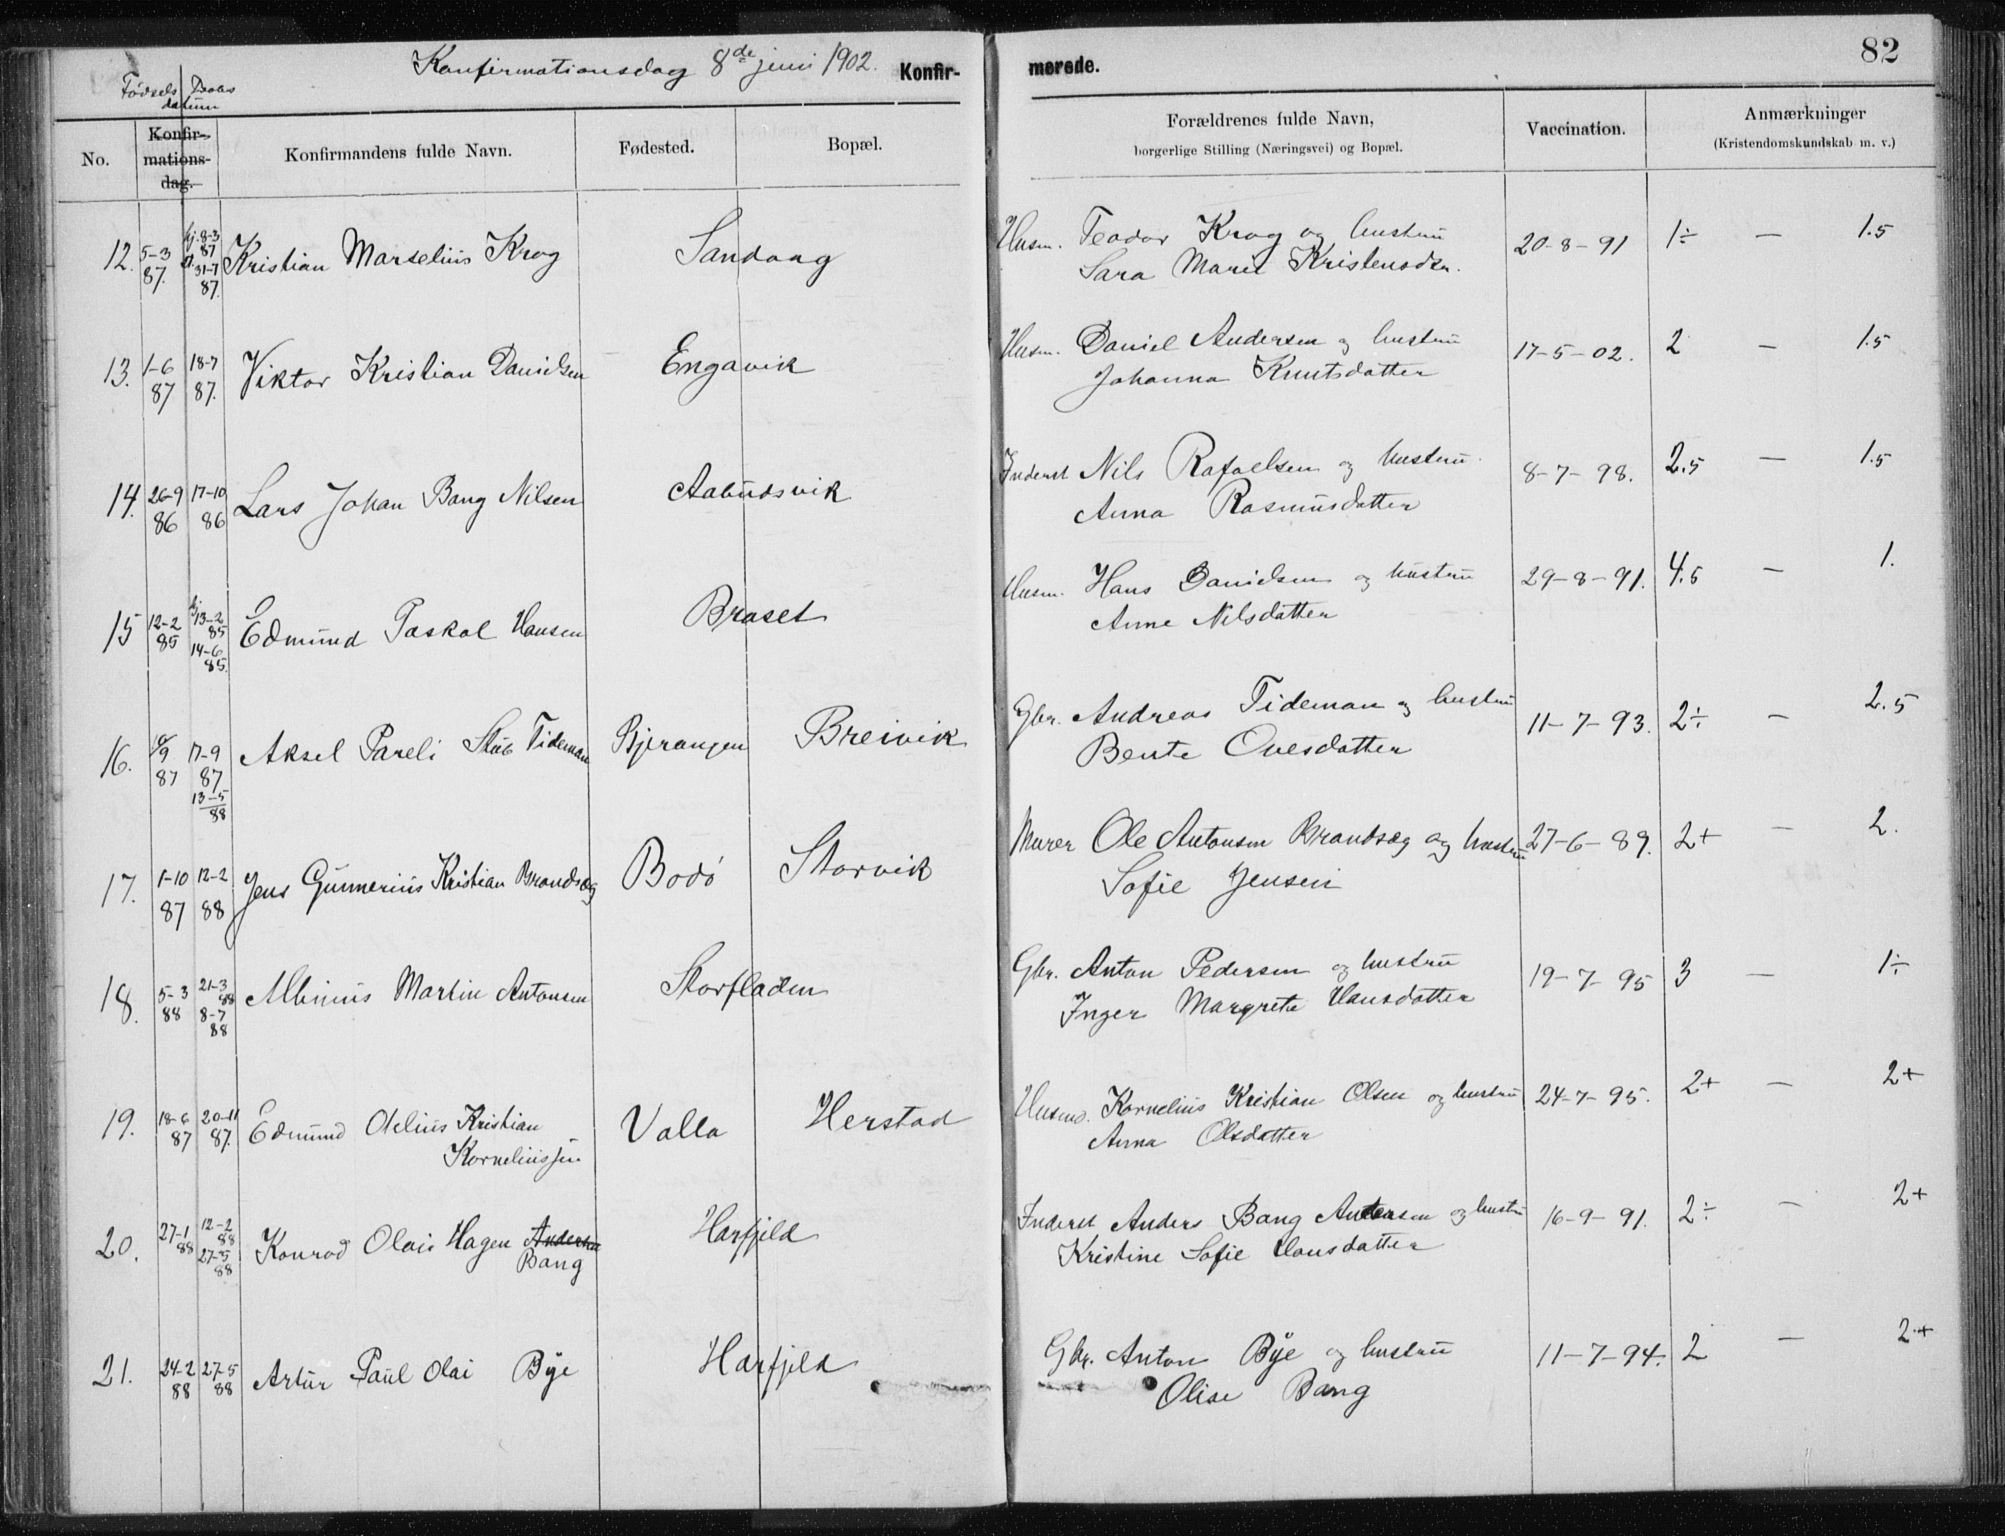 Konfirmationsdag 8de juni 1902. Konfir-
merede. 82
Fødsels Daabs
datum
No. Konfir-
mations-
dag. Konfirmandens fulde Navn. Fødested. Bopæl. Forældrenes fulde Navn,
borgerlige Stilling (Næringsvei) og Bopæl. Vaccination. Anmærkninger
(Kristendomskundskab m. v.)
12. 5-3 87. hj. 8-3 87 31-7 87. Kristian Marselius Krog Sandaag Husm. Teodor Krog og hustru 20-8-91 1÷ — 1.5
Sara Marie Kristensdtr.
13. 1-6 87 18-7 87. Viktor Kristian Danielsen Engavik Husm. Daniel Andersen og hustru 17-5-02. 2 — 1.5
Johanna Knutsdatter
14. 26-9 86 17-10 86 Lars Johan Bang Nilsen Aabudsvik Inderst Nils Rafaelsen og hustru 8-7-98. 2.5 — 1.5
Anna Rasmusdatter
15 12-2 85 hj 13-2 85 14-6 85. Edmund Paskal Hansen Braset Husm. Hans Danielsen og hustru 29-8-91. 4.5 — 1.
Anne Nilsdatter
16. 87 17-9 87 13-5 88 Aksel Pareli Stub Tideman Bjerangen Breivik Gbr. Andreas Tideman og hustru 11-7-93. 2÷ — 2.5
Bente Ovesdatter
17. 1-10 87 12-2 88 Jens Gunnerius Kristian Brandsæg Bodø Storvik Murer Ole Antonsen Brandsæg og hustru 27-6-89. 2+ — 2.
Sofie Jensen
18. 5-3 88 21-3 88 8-7 88 Albinus Martin Antonsen Storfladen Gbr. Anton Pedersen og hustru 19-7-95 3 — 1÷
Inger Margrete Hansdatter
19. 18-6 87 20-11 87. Edmund Odelius Kristian Valla Herstad Husmd. Kornelius Kristian Olsen og hustru 24-7-95. 2+ — 2+
Korneliussen Anna Olsdatter
20. 27-1 88 12-2 88 27-5 88 Konrad Olai Hagen Andersen Harfjeld Inderst Anders Bang Antonsen og hustru 16-9-91. 2÷ — 2+
Bang Kristine Sofie Hansdatter
21. 24-2 88 27-5 88 Artur Paul Olai Bye Harfjeld Gbr. Anton Bye og hustru 11-7-94. 2 — 2+
Olise Bang